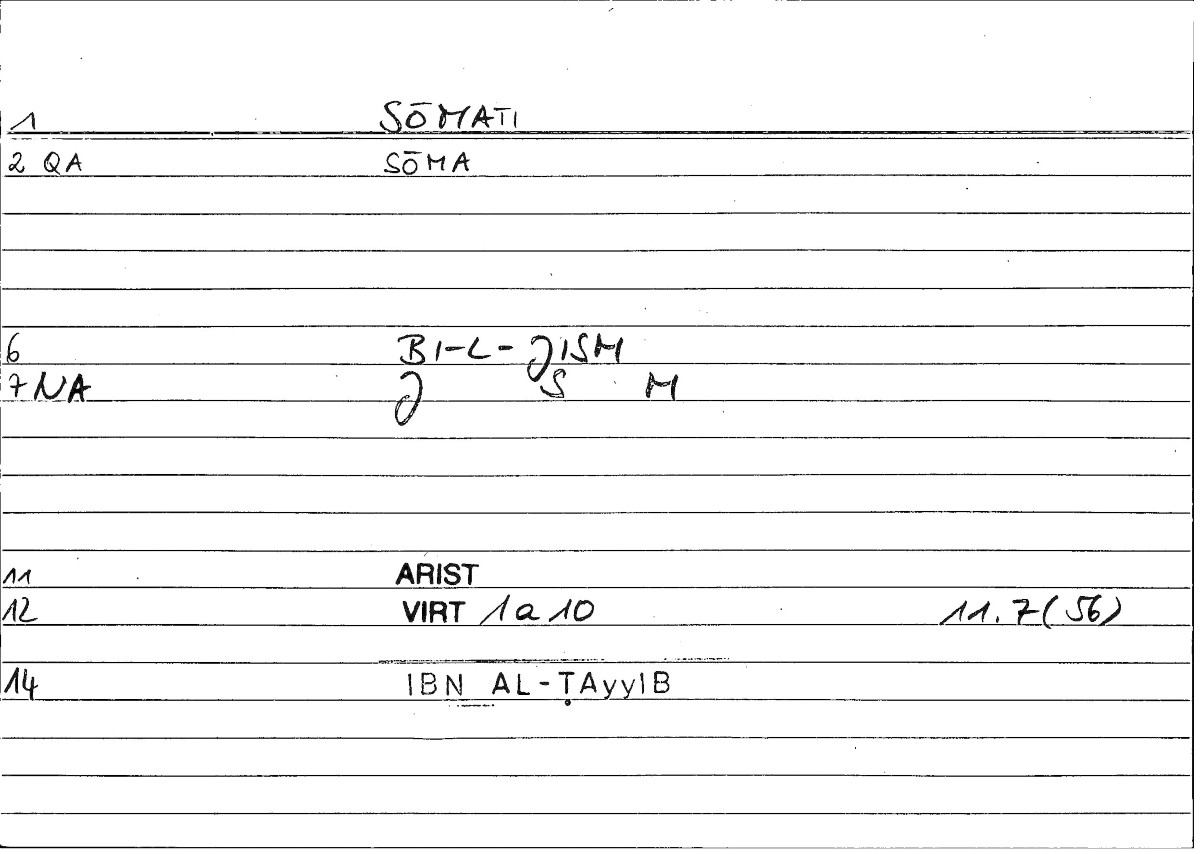 1 SŌMATI
2 QA SŌMA
6 BI-L-JISM
7 NA J S M
11 ARIST
12 VIRT 1a10 11.7(56)
14 IBN AL-ṬAyyIB